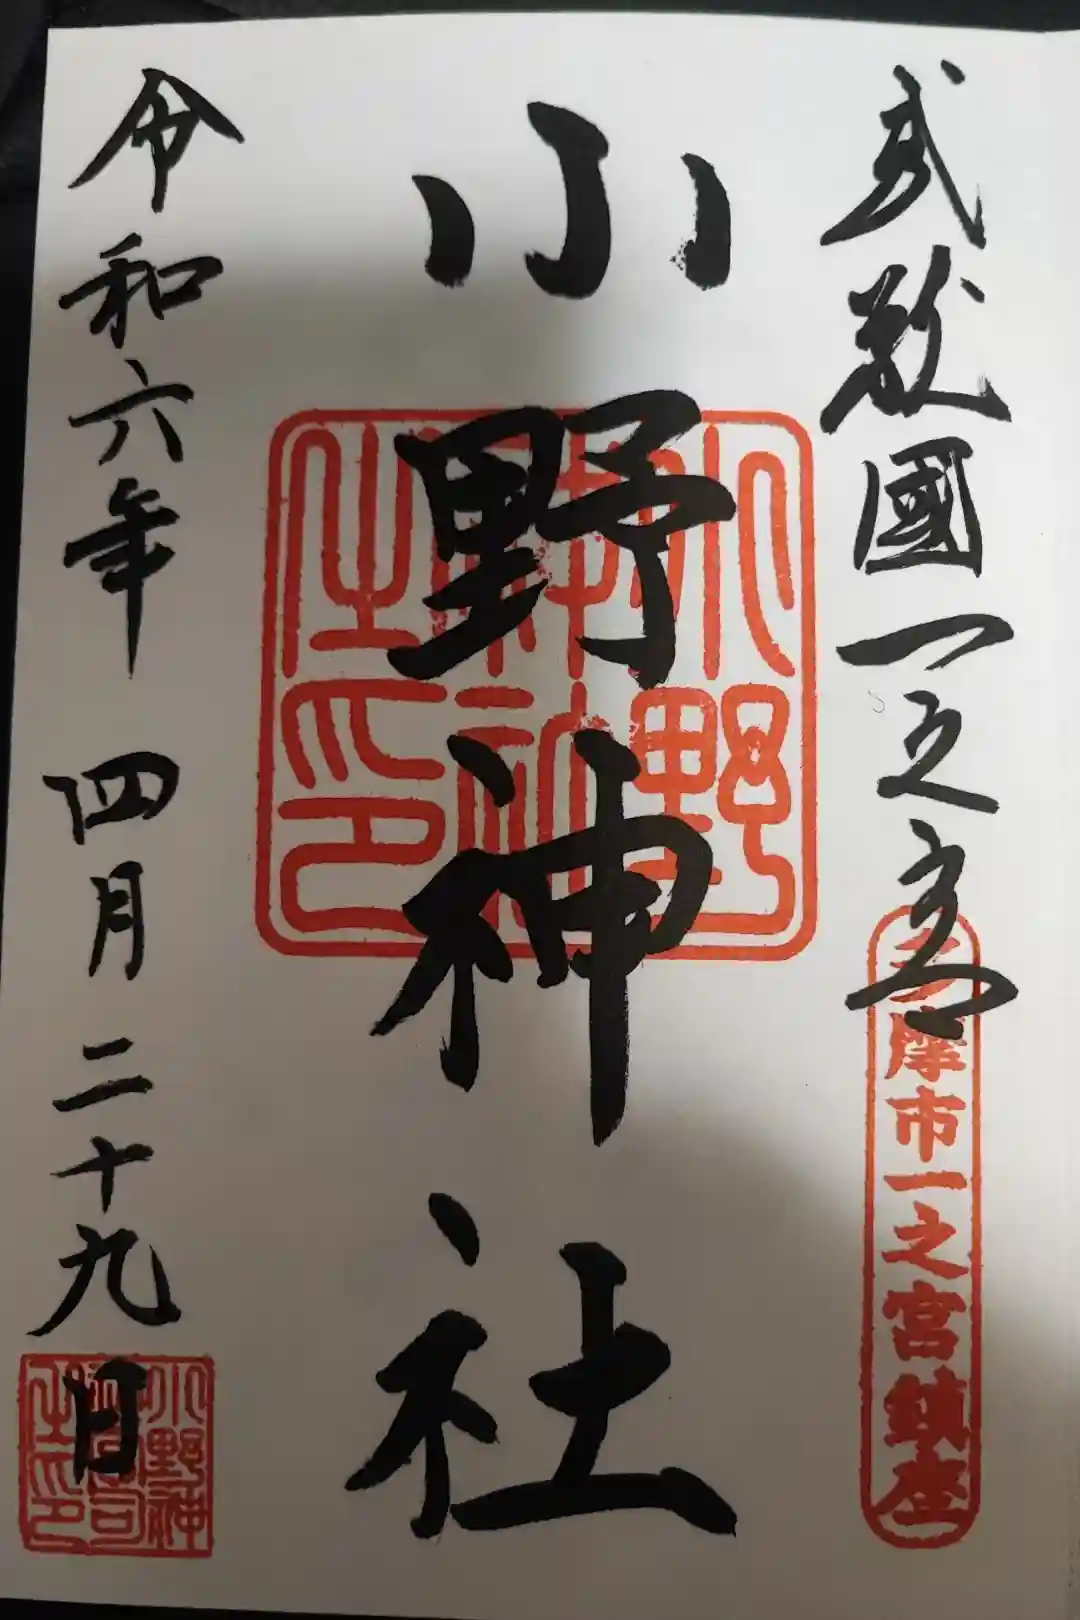 武蔵國一之宮
多摩市一之宮鎮座
小野神社
小野神社之印
令和六年 四月二十九日
小野神社宮司之印